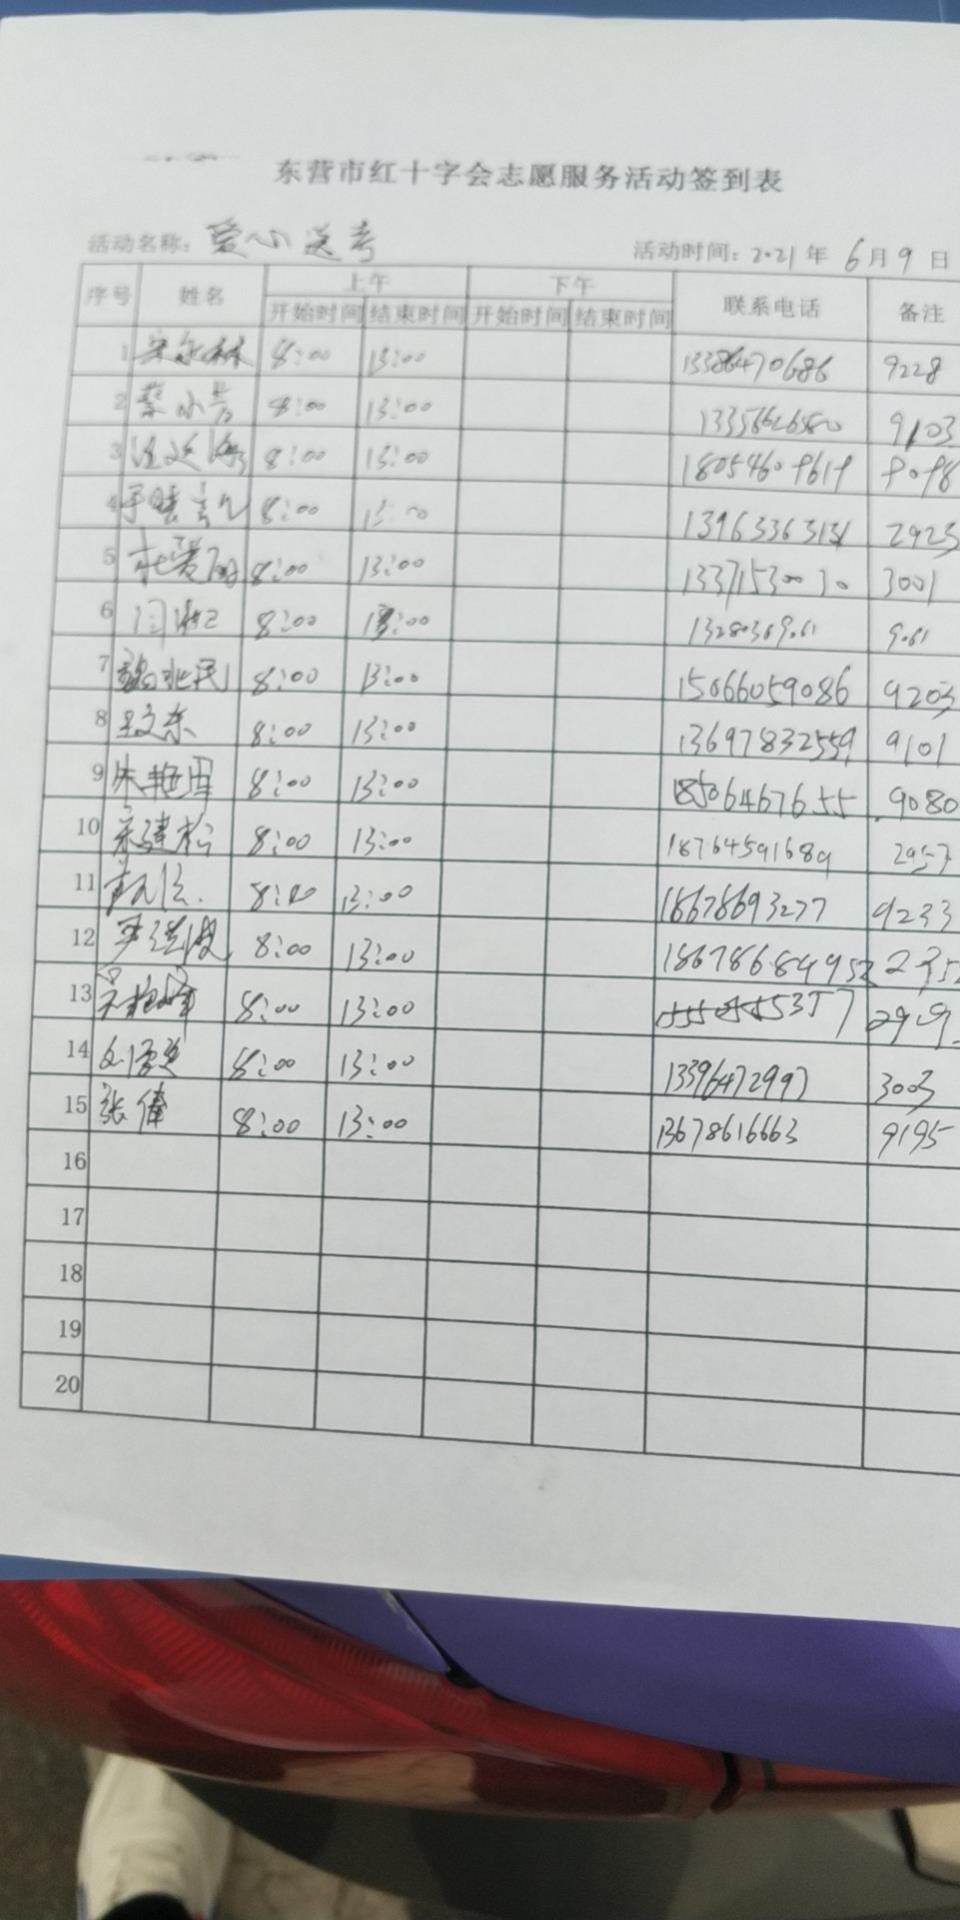 东营市红十字会志愿服务活动签到表
活动名称: 爱心送考 活动时间: 2021年 6月 9日
序号 姓名 上午 下午 联系电话 备注
开始时间 结束时间 开始时间 结束时间
1 8:00 13:00 13386470686 9228
2 蔡小芳 8:00 13:00 9103
3 汪延海 8:00 13:00 18054609619 9098
4 8:00 13:00 13963363131 2923
5 杜爱丽 8:00 13:00 13371530030 3001
6 闫 8:00 13:00 13280369061 9061
7 民 8:00 13:00 15066059086 9203
8 王文东 8:00 13:00 13697832559 9101
9 朱艳国 8:00 13:00 18506467655 9080
10 宋建松 8:00 13:00 18764591689 2957
11 8:00 13:00 18678693277 9233
12 8:00 13:00
13 8:00 13:00
14 8:00 13:00 13396472997 3003
15 张伟 8:00 13:00 13678616663 9195
16
17
18
19
20